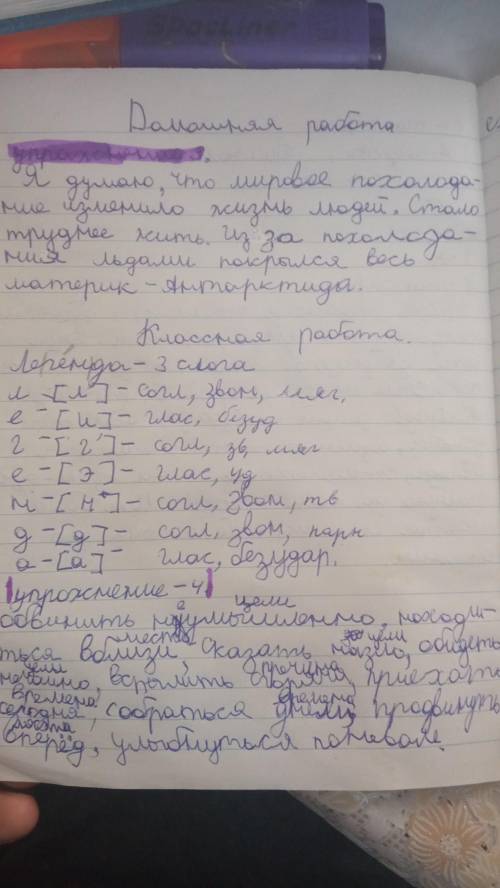 SpacLiner
Домашняя работа
упражнение 3.
Я думаю, что мировое похолода-
ние изменило жизнь людей. Стало
труднее жить. Из за похолода-
ния льдами покрылся весь
материк - Антарктида.
Классная работа.
Легенда - 3 слога
л - [л'] - согл, звон, мяг.
е - [и] - глас, безуд
г - [г'] - согл, зв, мяг
е - [э] - глас, уд
н - [н] - согл, звон, тв
д - [д] - согл, звон, парн
а - [а] - глас, безудар.
упрожнение - 4
цели
обвинить неумышленно, находи-
места цели
ться вблизи, сказать назло, обидеть
цели причина
нечаянно, вспылить сгоряча, приехать
времена времена
сегодня, собраться днём, продвинуть
места
вперёд, улыбнуться поневоле.